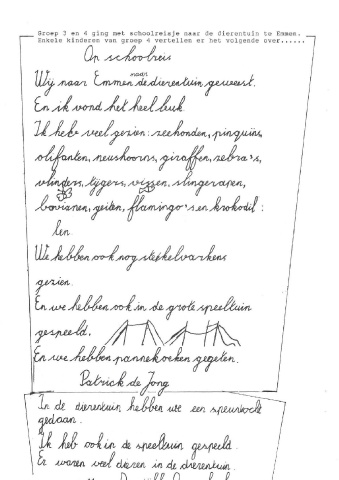 Groep 3 en 4 ging met schoolreisje naar de dierentuin te Emmen.
Enkele kinderen van groep 4 vertellen er het volgende over......
Op schoolreis
naar
Wij naar Emmen de dierentuin geweest.
En ik vond het heel leuk.
Ik heb veel gezien: zeehonden, pinguins,
olifanten, neushoorns, giraffen, zebra's,
vlinders, tijgers, vissen, slingerapen,
bavianen, geiten, flamingo's en krokodil:
len.
We hebben ook nog stekelvarkens
gezien.
En we hebben ook in de grote speeltuin
gespeeld.
En we hebben pannekoeken gegeten.
Patrick de Jong
In de dierentuin hebben we een speurtocht
gedaan.
Ik heb ook in de speeltuin gespeeld.
Er waren veel dieren in de dierentuin.